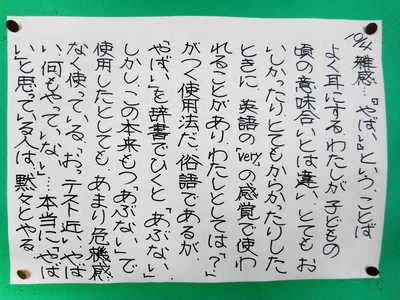 10/4 雑感…『やばい』ということば
よく耳にする。わたしが子どもの
頃の意味合いとは違い、とてもお
いしかったり、とてもからかったりした
ときに、英語の『very』の感覚で使わ
れることがあり、わたしとしては「？」
がつく使用法だ。俗語であるが、
やばい』を辞書でひくと「あぶない」
しかし、この本来もつ「あぶない」で
使用したとしても、あまり危機感
なく使っている「おっテスト近い、やば
い、何もやっていな〜い」…本当に「やば
い」と思っている人は、黙々とやる